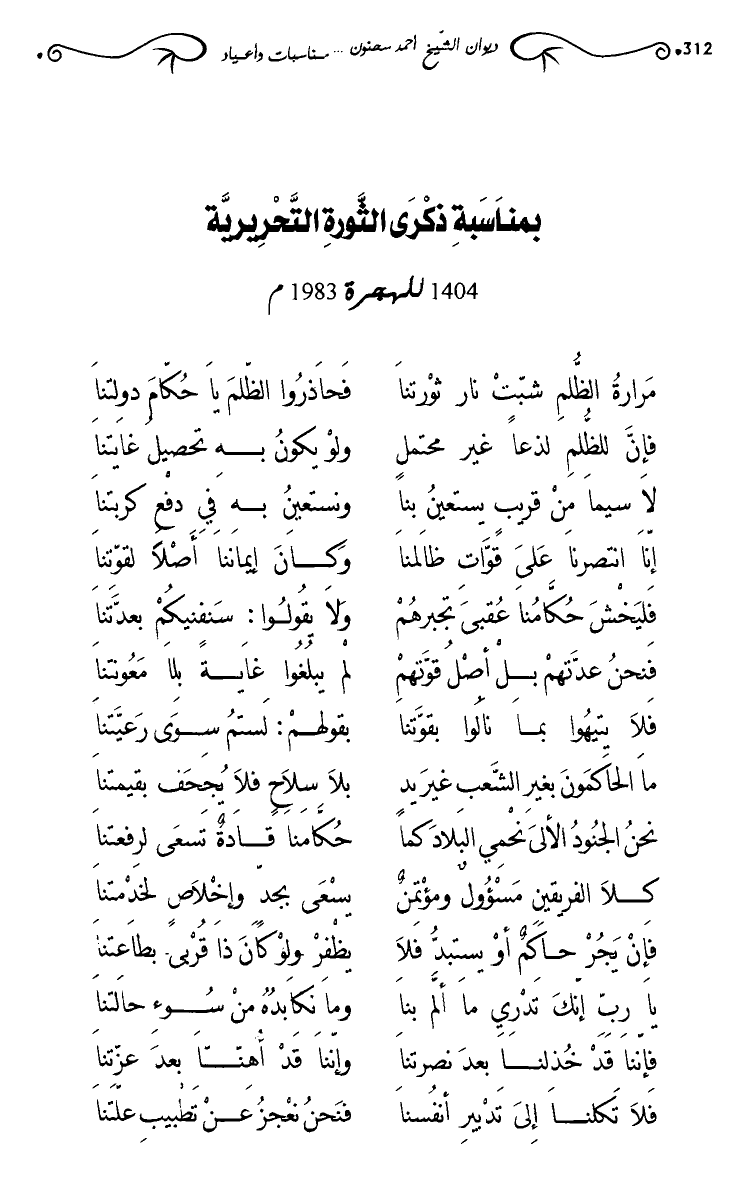 312 ديوان الشّيخ احمد سحنون ... مناسبات وأعياد
بمناَسَبةِ ذكْرَى الثَّورةِ التَّحْرِيريَّة
1404 للهجرة 1983 م
مَرارةُ الظُّلمِ شبّتْ نار ثوْرتناَ فَحاَذرُوا الظّلمَ ياَ حُكّامَ دولتناَ
فإنَّ للظُّلمِ لذعاً غير محتملٍ ولوْ يكونُ بـــه تحصيلُ غايتناَ
لاَ سيماَ منْ قريبٍ يستعينُ بناَ ونستعينُ بـــهِ فِي دفْعِ كربتناَ
إنّا انتصرناَ علَىَ قوَّاتِ ظالمناَ وَكَـــانَ إيماننَا أصْلاً لقوّتناَ
فليَخْشَ حُكَّامُنا عُقبىَ تجبرهُمْ ولاَ يقُولُـوا: سَنفنيكُمْ بعدَّتناَ
فنحنُ عدتهمْ بـــلْ أصْلُ قوَّتهِمْ لمْ يبلُغُوا غايـــةً بلاَ مَعُونتناَ
فلاَ يتيهُوا بمـــا نالُوا بقوَّتناَ بقولهـــمْ: لستمُ ســـوَى رَعيَّتناَ
ما الحاَكمَونَ بغيرِ الشَّعبِ غيرَ يدٍ بلاَ سِلاَحٍ فلاَ يُجحَف بقيمتناَ
نحنُ الجنُودُ الألىَ نحْمِي البلاَدَ كماَ حُكَّامناَ قـــادةٌ تسعَى لرفعتناَ
كـــلاَ الفريقينِ مَسْؤُول ومؤْتمنٌ يسعْى بجدٍّ وإخْلاَصٍ لخدْمتناَ
فإنْ يَجُرْ حـاكمٌ أوْ يستبدُّ فلاَ يظْفرْ ولوْ كاَنَ ذا قُرْبى بطاَعتناَ
يا ربّ إنّكَ تدْرِي ما ألمَّ بناَ وما نكاَبدُهُ منْ سُـــوء حالتناَ
فإنّناَ قدْ خُذلنـــا بعدَ نصْرتناَ وإنّنا قدْ أُهنّـــا بعدَ عزّتناَ
فلاَ تكلنـــا إلىَ تدْبيرِ أنفُسناَ فنَحنُ نعْجزُ عـــنْ تطْبيبِ علّتناَ